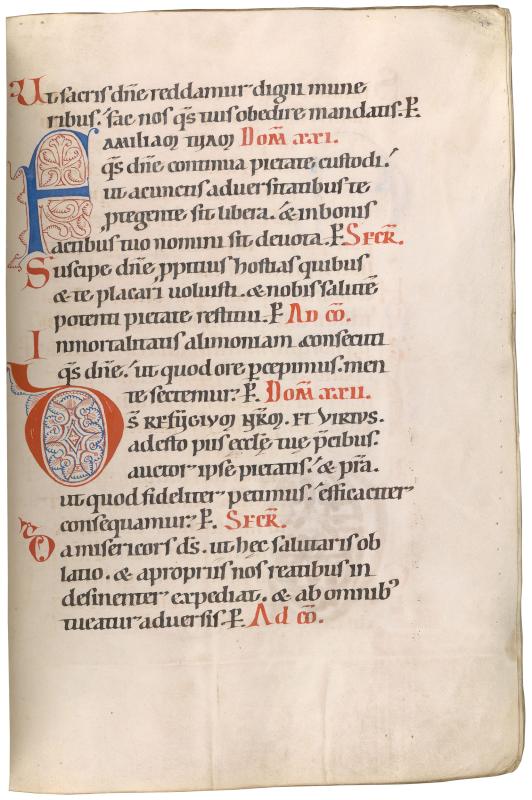 Ut sacris dñe reddamur digni mune
ribus. fac nos qs tuis obedire mandatis. P̱.
FAMILIAM TUAM Dom̄ xxi.
qs dñe continua pietate custodi.
ut a cunctis aduersitatibus te
ꝓtegente sit libera. & in bonis
actibus tuo nomini sit deuota. P̱. SECR̄.
Suscipe dñe ꝓpitius hostias quibus
& te placari uoluisti. & nobis salutē
potenti pietate restitui. P̱ AD CŌ.
Inmortalitatis alimoniam consecuti
qs dñe. ut quod ore ꝑcepimus. men
te sectemur. P̱. Dom̄ xxii.
DS̄ REFUGIUM NR̄M. ET VIRTUS.
adesto piis eccłe tue p̄cibus.
auctor ipse pietatis. & p̄ra.
ut quod fideliter petimus. efficaciter
consequamur. P̱. SECR̄.
Da misericors ds̄. ut hec salutaris ob
latio. & a propriis nos reatibus in
desinenter expediat. & ab omnibꝰ
tueatur aduersis. P̱. Ad cō.